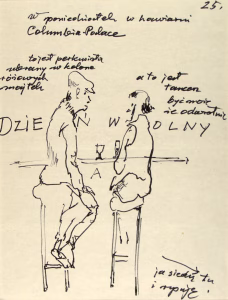 25.
w poniedziałek w kawiarni
Columbia-Palace
to jest perkusista
ubrany w kolorze
różowych
majtek
a to jest
tancerz
być może
DZIE W OLNY
A
ja siedzę tu
i rysuję!